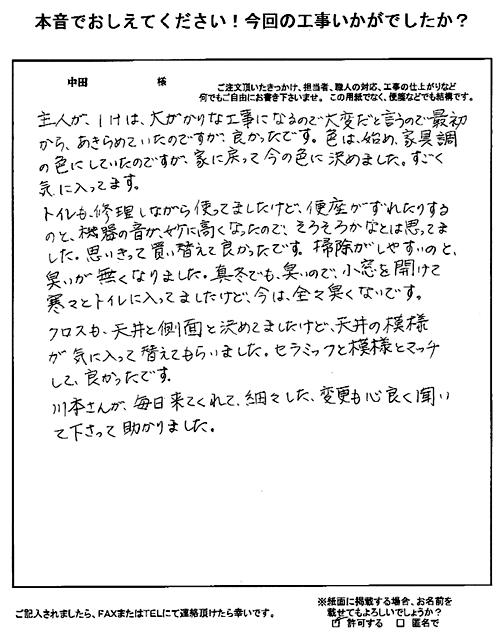 本音でおしえてください！今回の工事いかがでしたか？
中田 様
ご注文頂いたきっかけ、担当者、職人の対応、工事の仕上がりなど
何でもご自由にお書き下さいませ。この用紙でなく、便箋などでも結構です。
主人が、1Fは、大がかりな工事になるので大変だと言うので最初
から、あきらめていたのですが、良かったです。色は、始め、家具調
の色にしていたのですが、家に戻って今の色に決めました。すごく
気に入ってます。
トイレも、修理しながら使ってましたけど、便座がずれたりする
のと、機器の音が、妙に高くなったので、そろそろかなとは思ってま
した。思いきって買い替えて良かったです。掃除がしやすいのと、
臭いが無くなりました。真冬でも、臭いので、小窓を開けて
寒々とトイレに入ってましたけど、今は、全々臭くないです。
クロスも、天井と側面と決めてましたけど、天井の模様
が気に入って替えてもらいました。セラミックと模様とマッチ
して、良かったです。
川本さんが、毎日来てくれて、細々した、変更も心良く聞い
て下さって助かりました。
ご記入されましたら、FAXまたはTELにて連絡頂けたら幸いです。
※紙面に掲載する場合、お名前を
載せてもよろしいでしょうか？
☑ 許可する □ 匿名で